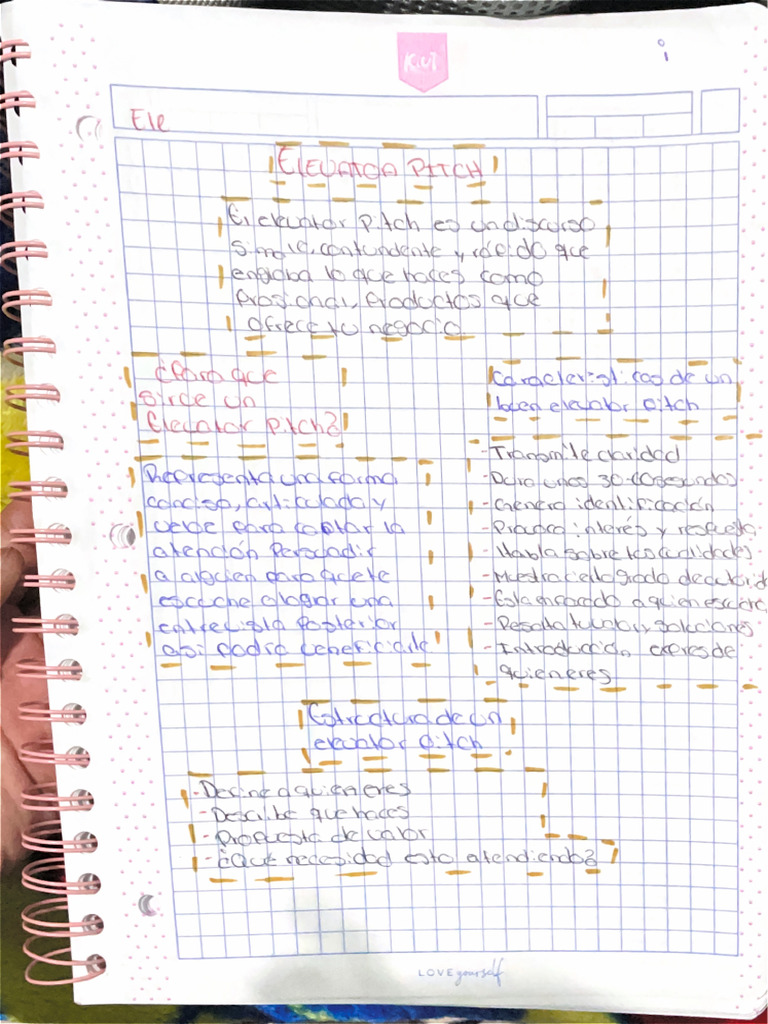 K.UT
Ele
ELEVATOR PITCH
El elevator pitch es un discurso
simple, contundente y rápido que
engloba lo que haces como
profesional, productos que
ofrece tu negocio
¿Para que
sirve un
Elevator pitch?
Representa una forma
concisa, articulada y
verbe para captar la
atención Persuadir
a alguien para que te
escuche o lograr una
entrevista posterior
asi podra beneficiarle
Caracteristicas de un
buen elevator pitch
- Transmite claridad
- Dura unos 30-60 segundos
- Genera identificación
- Provoca interés y respuesta
- Habla sobre tus cualidades
- Muestra cierto grado de
- Esta enfocado a quien escucha
- Resalta tu valor y soluciones
- Introducción, de
quien eres
Estructura de un
elevator pitch
- Define a quien eres
- Describe que haces
- Propuesta de valor
- ¿Que necesidad esta atendiendo?
LOVE yourself